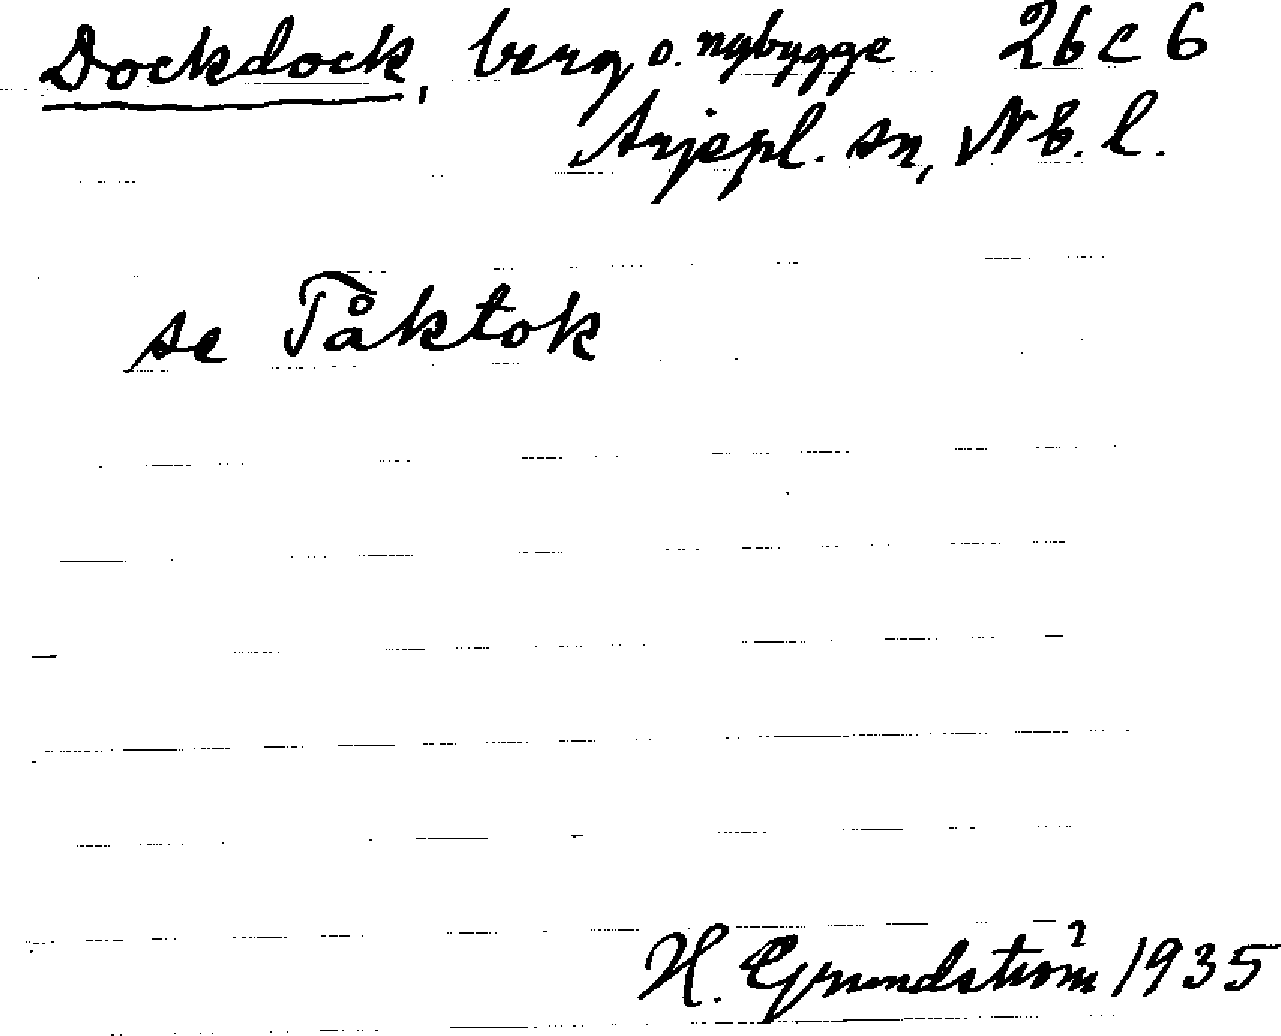 Dockdock, berg o. nybygge 26c6
Arjepl. sn, Nb. l.
se Tåktok
H. Grundström 1935